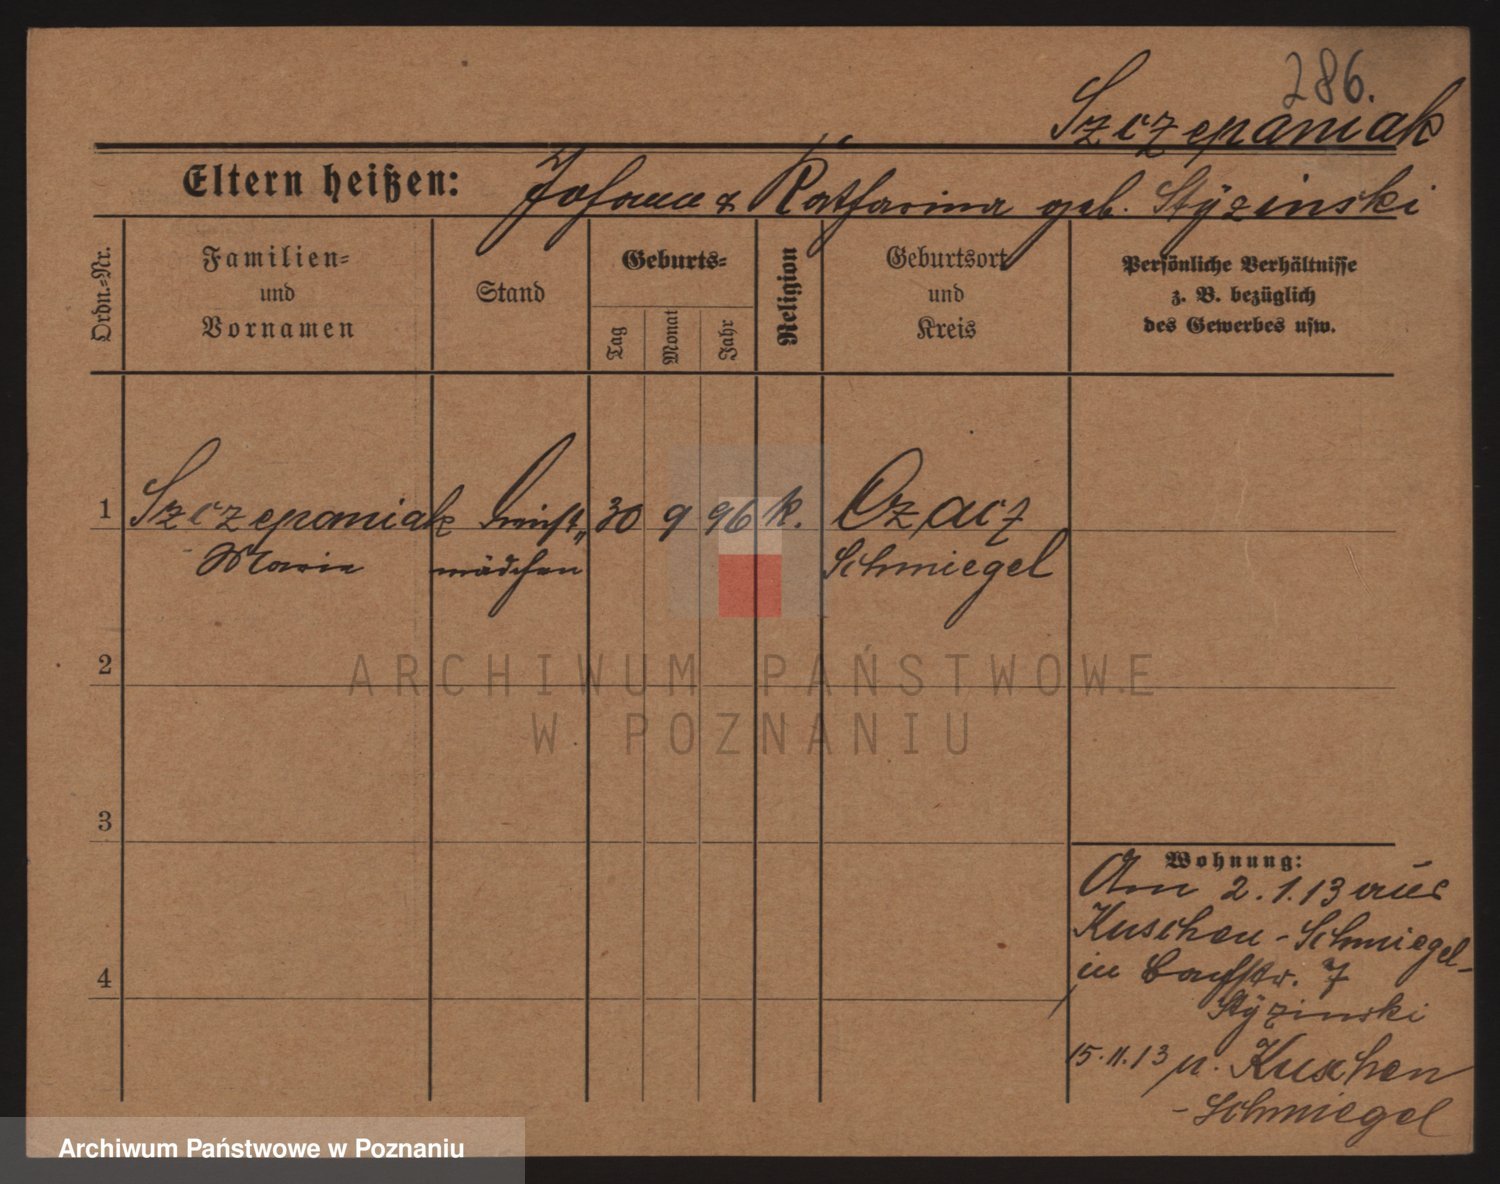 286.
Szczepaniak
Eltern heißen: Johann & Katharina geb. Styzinski
Ordn.-Nr.
Familien-
und
Vornamen
Stand
Geburts-
Tag
Monat
Jahr
Religion
Geburtsort
und
Kreis
Persönliche Verhältnisse
z. B. bezüglich
des Gewerbes usw.
1 Szczepaniak Dienst- 30 9 96 k. Czacz
Marie mädchen Schmiegel
2
3
4
Wohnung:
Am 2.1.13 aus
Kuschen-Schmiegel-
in 7
Styzinski
15.11.13 n. Kuschen
-Schmiegel
ARCHIWUM PAŃSTWOWE
W POZNANIU
Archiwum Państwowe w Poznaniu